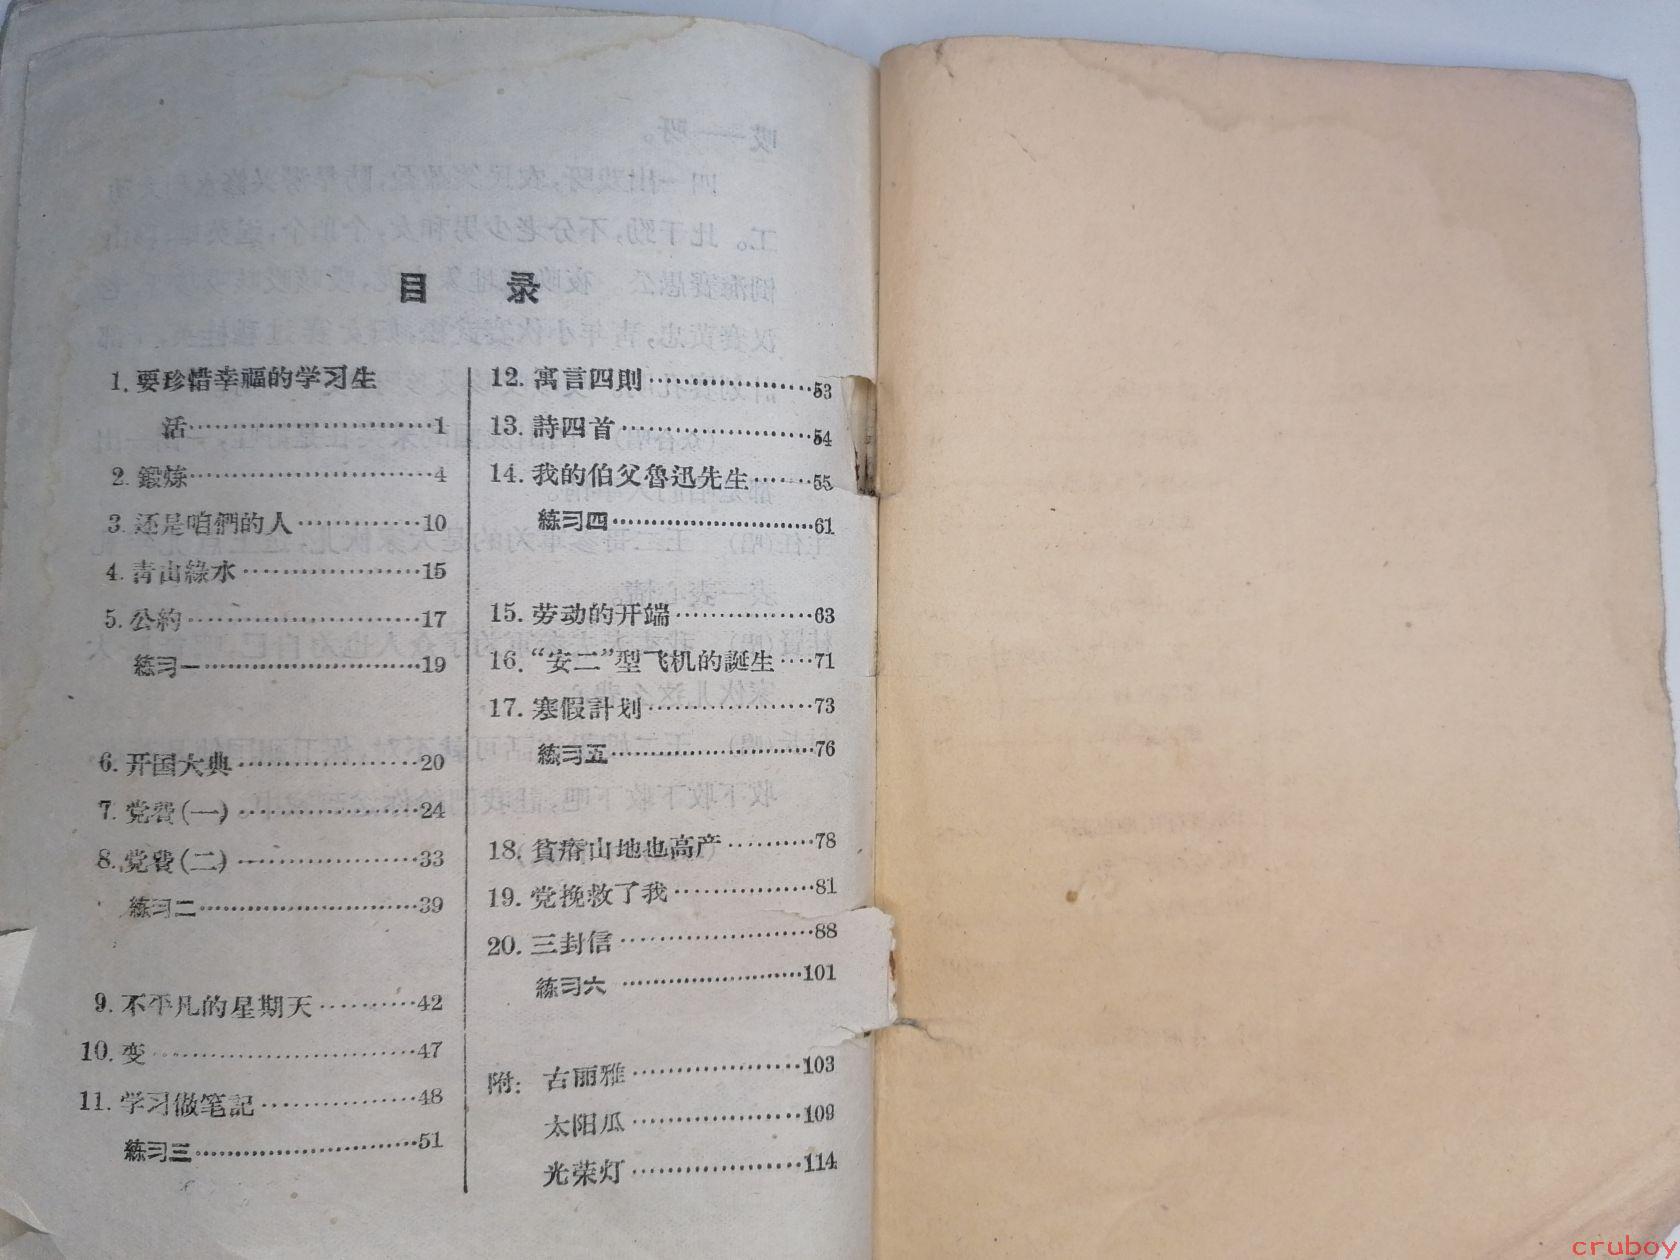 目 录
1. 要珍惜幸福的学习生
活…………………………1
2. 鍛炼…………………………4
3. 还是咱們的人……………10
4. 青山綠水…………………15
5. 公約…………………………17
練习一…………………………19
6. 开国大典…………………20
7. 党費(一)…………………24
8. 党費(二)…………………33
練习二…………………………39
9. 不平凡的星期天…………42
10. 变…………………………47
11. 学习做笔記………………48
練习三…………………………51
12. 寓言四則…………………53
13. 詩四首……………………54
14. 我的伯父魯迅先生………55
練习四…………………………61
15. 劳动的开端………………63
16. “安二”型飞机的誕生……71
17. 寒假計划…………………73
練习五…………………………76
18. 貧瘠山地也高产…………78
19. 党挽救了我………………81
20. 三封信……………………88
練习六…………………………101
附: 古丽雅…………………103
太阳瓜…………………109
光荣灯…………………114
cruboy